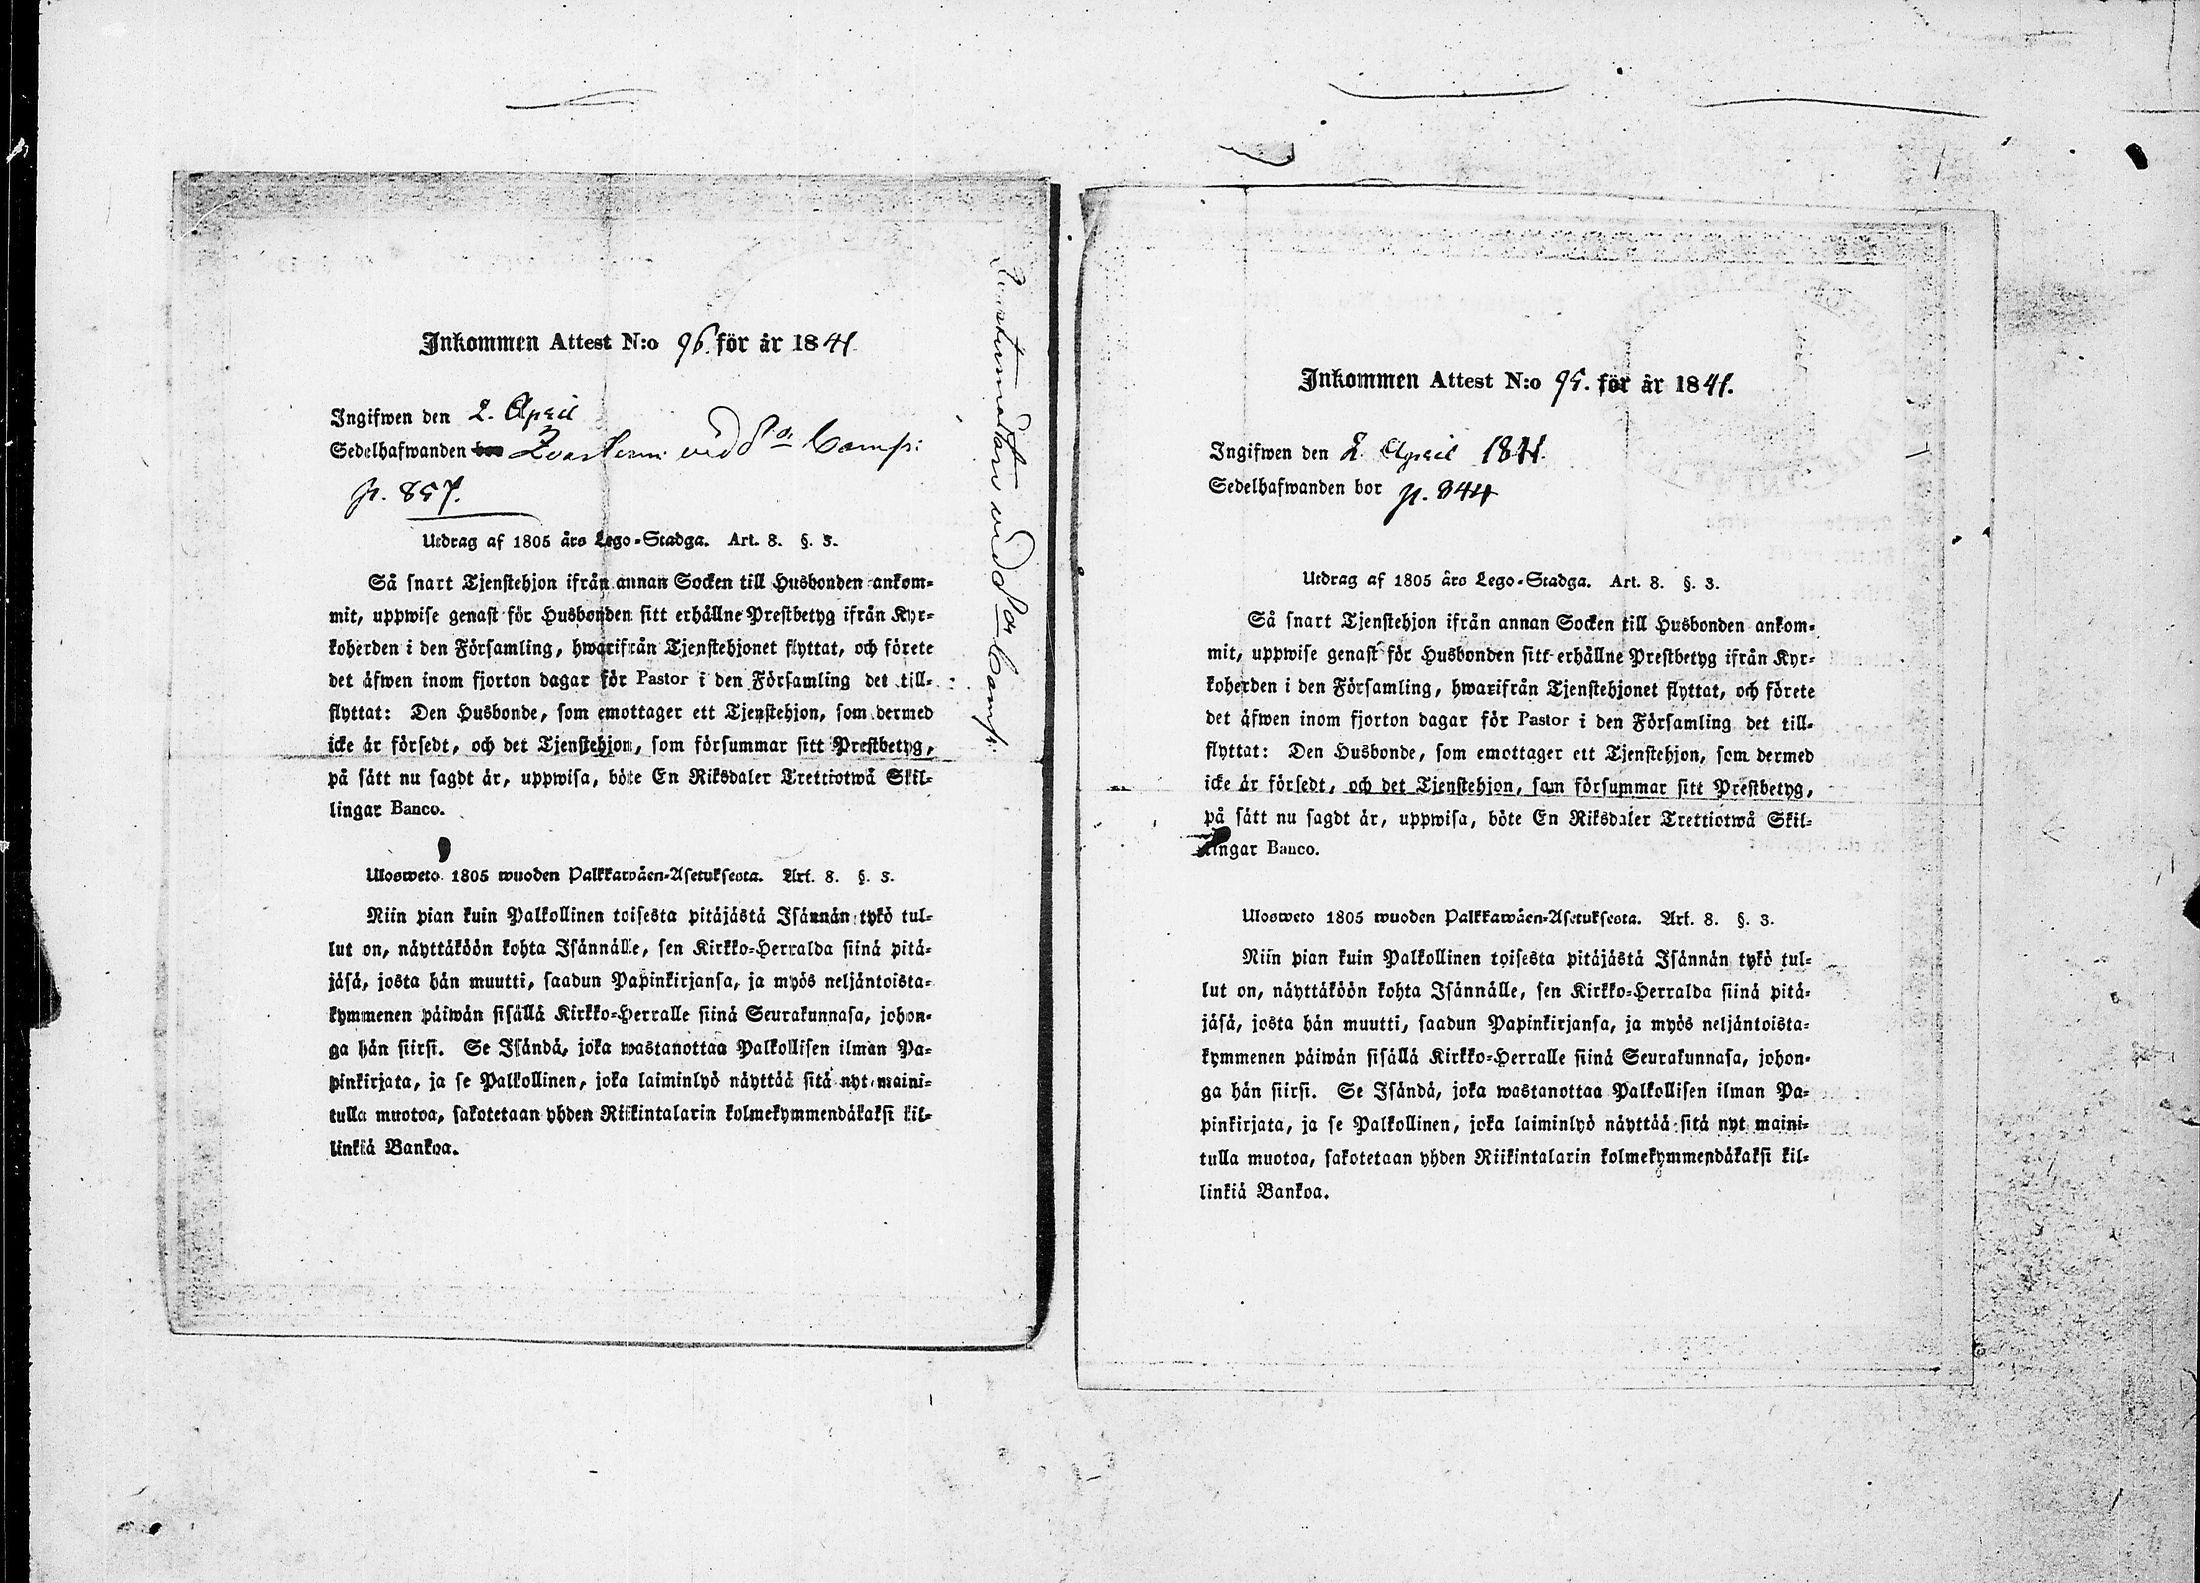 Inkommen Attest N:o 96. för år 1841.
Ingifwen den 2. April
Sedelhafwanden bor vid Comp:
p. 857.
Utdrag af 1805 års Lego-Stadga. Art. 8. §. 3.
Så snart Tjenstehjon ifrån annan Socken till Husbonden ankom-
mit, uppwise genast för Husbonden sitt erhållne Prestbetyg ifrån Kyr-
koherden i den Församling, hwarifrån Tjenstehjonet flyttat, och förete
det äfwen inom fjorton dagar för Pastor i den Församling det till-
flyttat: Den Husbonde, som emottager ett Tjenstehjon, som dermed
icke är försedt, och det Tjenstehjon, som försummar sitt Prestbetyg,
på sätt nu sagdt är, uppwisa, böte En Riksdaler Trettiotwå Skil-
lingar Banco.
Ulosweto 1805 wuoden Palkkawäen-Asetuksesta. Art. 8. §. 3.
Niin pian kuin Palkollinen toisesta pitäjästä Isännän tykö tul-
lut on, näyttäköön kohta Isännälle, sen Kirkko-Herralda siinä pitä-
jäsä, josta hän muutti, saadun Papinkirjansa, ja myös neljäntoista-
kymmenen päiwän sisällä Kirkko-Herralle siinä Seurakunnasa, johon-
ga hän siirsi. Se Isändä, joka wastanottaa Palkollisen ilman Pa-
pinkirjata, ja se Palkollinen, joka laiminlyö näyttää sitä nyt maini-
tulla muotoa, sakotetaan yhden Riikintalarin kolmekymmendäkaksi kil-
linkiä Bankoa.
vid Comp:
Inkommen Attest N:o 95. för år 1841.
Ingifwen den 2. April 1841.
Sedelhafwanden bor p. 844
Utdrag af 1805 års Lego-Stadga. Art. 8. §. 3.
Så snart Tjenstehjon ifrån annan Socken till Husbonden ankom-
mit, uppwise genast för Husbonden sitt erhållne Prestbetyg ifrån Kyr-
koherden i den Församling, hwarifrån Tjenstehjonet flyttat, och förete
det äfwen inom fjorton dagar för Pastor i den Församling det till-
flyttat: Den Husbonde, som emottager ett Tjenstehjon, som dermed
icke är försedt, och det Tjenstehjon, som försummar sitt Prestbetyg,
på sätt nu sagdt är, uppwisa, böte En Riksdaler Trettiotwå Skil-
lingar Banco.
Ulosweto 1805 wuoden Palkkawäen-Asetuksesta. Art. 8. §. 3.
Niin pian kuin Palkollinen toisesta pitäjästä Isännän tykö tul-
lut on, näyttäköön kohta Isännälle, sen Kirkko-Herralda siinä pitä-
jäsä, josta hän muutti, saadun Papinkirjansa, ja myös neljäntoista-
kymmenen päiwän sisällä Kirkko-Herralle siinä Seurakunnasa, johon-
ga hän siirsi. Se Isändä, joka wastanottaa Palkollisen ilman Pa-
pinkirjata, ja se Palkollinen, joka laiminlyö näyttää sitä nyt maini-
tulla muotoa, sakotetaan yhden Riikintalarin kolmekymmendäkaksi kil-
linkiä Bankoa.